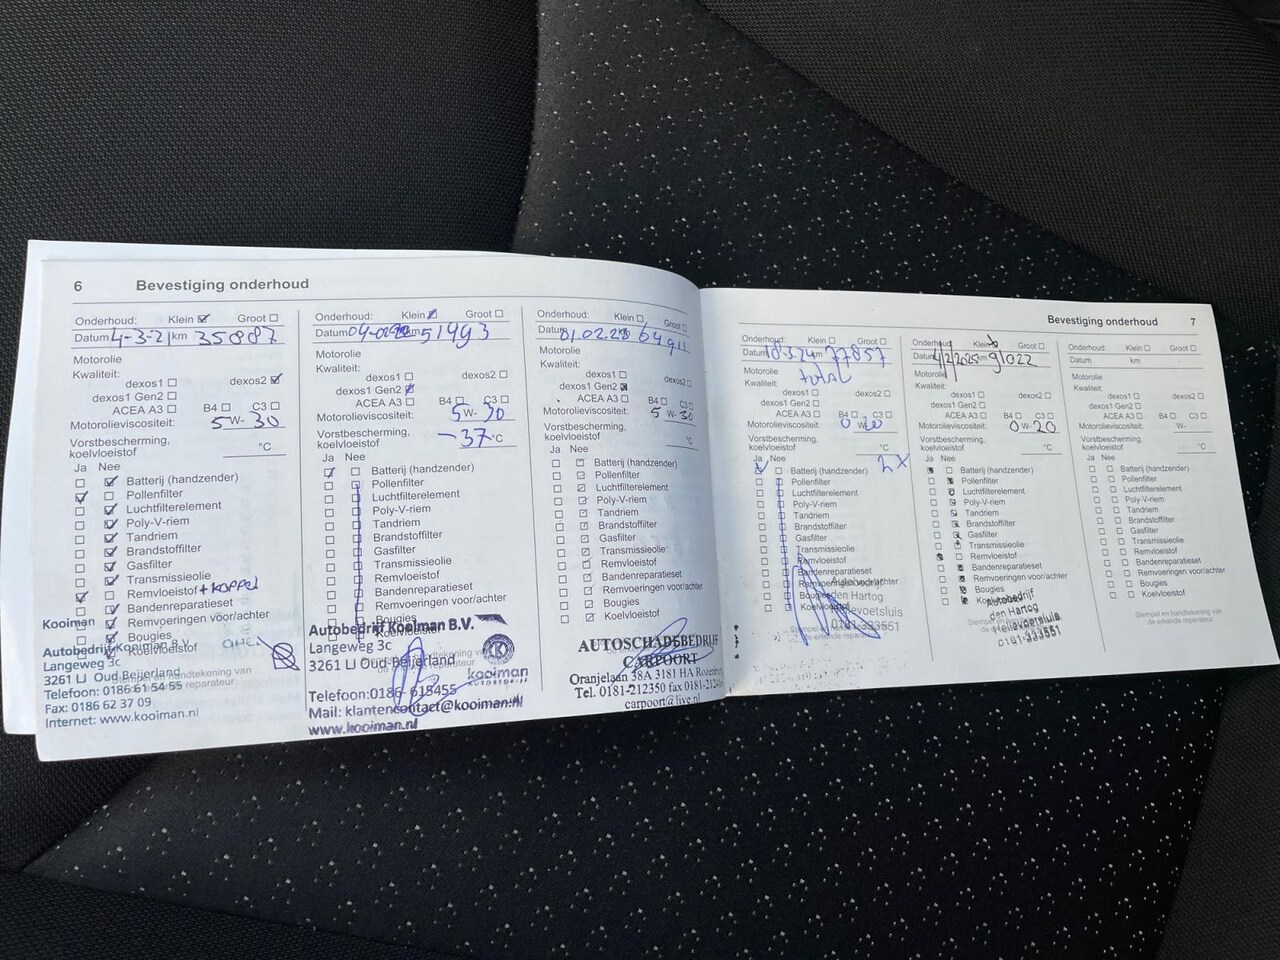 6 Bevestiging onderhoud
Onderhoud: Klein Groot
Datum 4-3-21 km 35887
Motorolie
Kwaliteit:
dexos1 dexos2
dexos1 Gen2
ACEA A3 B4 C3
Motorolieviscositeit: 5 W- 30
Vorstbescherming, koelvloeistof °C
Ja Nee
Batterij (handzender)
Pollenfilter
Luchtfilterelement
Poly-V-riem
Tandriem
Brandstoffilter
Gasfilter
Transmissieolie
Remvloeistof + koppel
Bandenreparatieset
Remvoeringen voor/achter
Bougies
Koelvloeistof
Kooiman
Autobedrijf Kooiman B.V.
Langeweg 3c
3261 LJ Oud Beijerland
Telefoon: 0186 61 54 55
Fax: 0186 62 37 09
Internet: www.kooiman.nl
Onderhoud: Klein Groot
Datum km 51493
Motorolie
Kwaliteit:
dexos1 dexos2
dexos1 Gen2
ACEA A3 B4 C3
Motorolieviscositeit: 5 W- 30
Vorstbescherming, koelvloeistof -37 °C
Ja Nee
Batterij (handzender)
Pollenfilter
Luchtfilterelement
Poly-V-riem
Tandriem
Brandstoffilter
Gasfilter
Transmissieolie
Remvloeistof
Bandenreparatieset
Remvoeringen voor/achter
Bougies
Koelvloeistof
Autobedrijf Kooiman B.V.
Langeweg 3c
3261 LJ Oud Beijerland
Telefoon:0186- 615455
Mail: klantencontact@kooiman.nl
www.kooiman.nl
kooiman
AUTOBEDRIJF
Onderhoud: Klein Groot
Datum km
Motorolie
Kwaliteit:
dexos1 dexos2
dexos1 Gen2
ACEA A3 B4 C3
Motorolieviscositeit: 5 W- 30
Vorstbescherming, koelvloeistof °C
Ja Nee
Batterij (handzender)
Pollenfilter
Luchtfilterelement
Poly-V-riem
Tandriem
Brandstoffilter
Gasfilter
Transmissieolie
Remvloeistof
Bandenreparatieset
Remvoeringen voor/achter
Bougies
Koelvloeistof
AUTOSCHADEBEDRIJF
CARPOORT
Oranjelaan 38A 3181 HA
Tel. 0181-212350 fax
carpoort@live.nl
Bevestiging onderhoud 7
Onderhoud: Klein Groot
Datum 18-3-24 km 77857
Motorolie total
Kwaliteit:
dexos1 dexos2
dexos1 Gen2
ACEA A3 B4 C3
Motorolieviscositeit: 0 W- 20
Vorstbescherming, koelvloeistof °C
Ja Nee
Batterij (handzender) 2x
Pollenfilter
Luchtfilterelement
Poly-V-riem
Tandriem
Brandstoffilter
Gasfilter
Transmissieolie
Remvloeistof
Bandenreparatieset
Remvoeringen voor/achter
Bougies
Koelvloeistof
Autobedrijf
den Hartog
Hellevoetsluis
0181-333551
Onderhoud: Klein Groot
Datum 4/2/2025 km 91022
Motorolie
Kwaliteit:
dexos1 dexos2
dexos1 Gen2
ACEA A3 B4 C3
Motorolieviscositeit: 0 W- 20
Vorstbescherming, koelvloeistof °C
Ja Nee
Batterij (handzender)
Pollenfilter
Luchtfilterelement
Poly-V-riem
Tandriem
Brandstoffilter
Gasfilter
Transmissieolie
Remvloeistof
Bandenreparatieset
Remvoeringen voor/achter
Bougies
Autobedrijf
den Hartog
Hellevoetsluis
0181-333551
Onderhoud: Klein Groot
Datum km
Motorolie
Kwaliteit:
dexos1 dexos2
dexos1 Gen2
ACEA A3 B4 C3
Motorolieviscositeit: W-
Vorstbescherming, koelvloeistof °C
Ja Nee
Batterij (handzender)
Pollenfilter
Luchtfilterelement
Poly-V-riem
Tandriem
Brandstoffilter
Gasfilter
Transmissieolie
Remvloeistof
Bandenreparatieset
Remvoeringen voor/achter
Bougies
Koelvloeistof
Stempel en handtekening van
de erkende reparateur